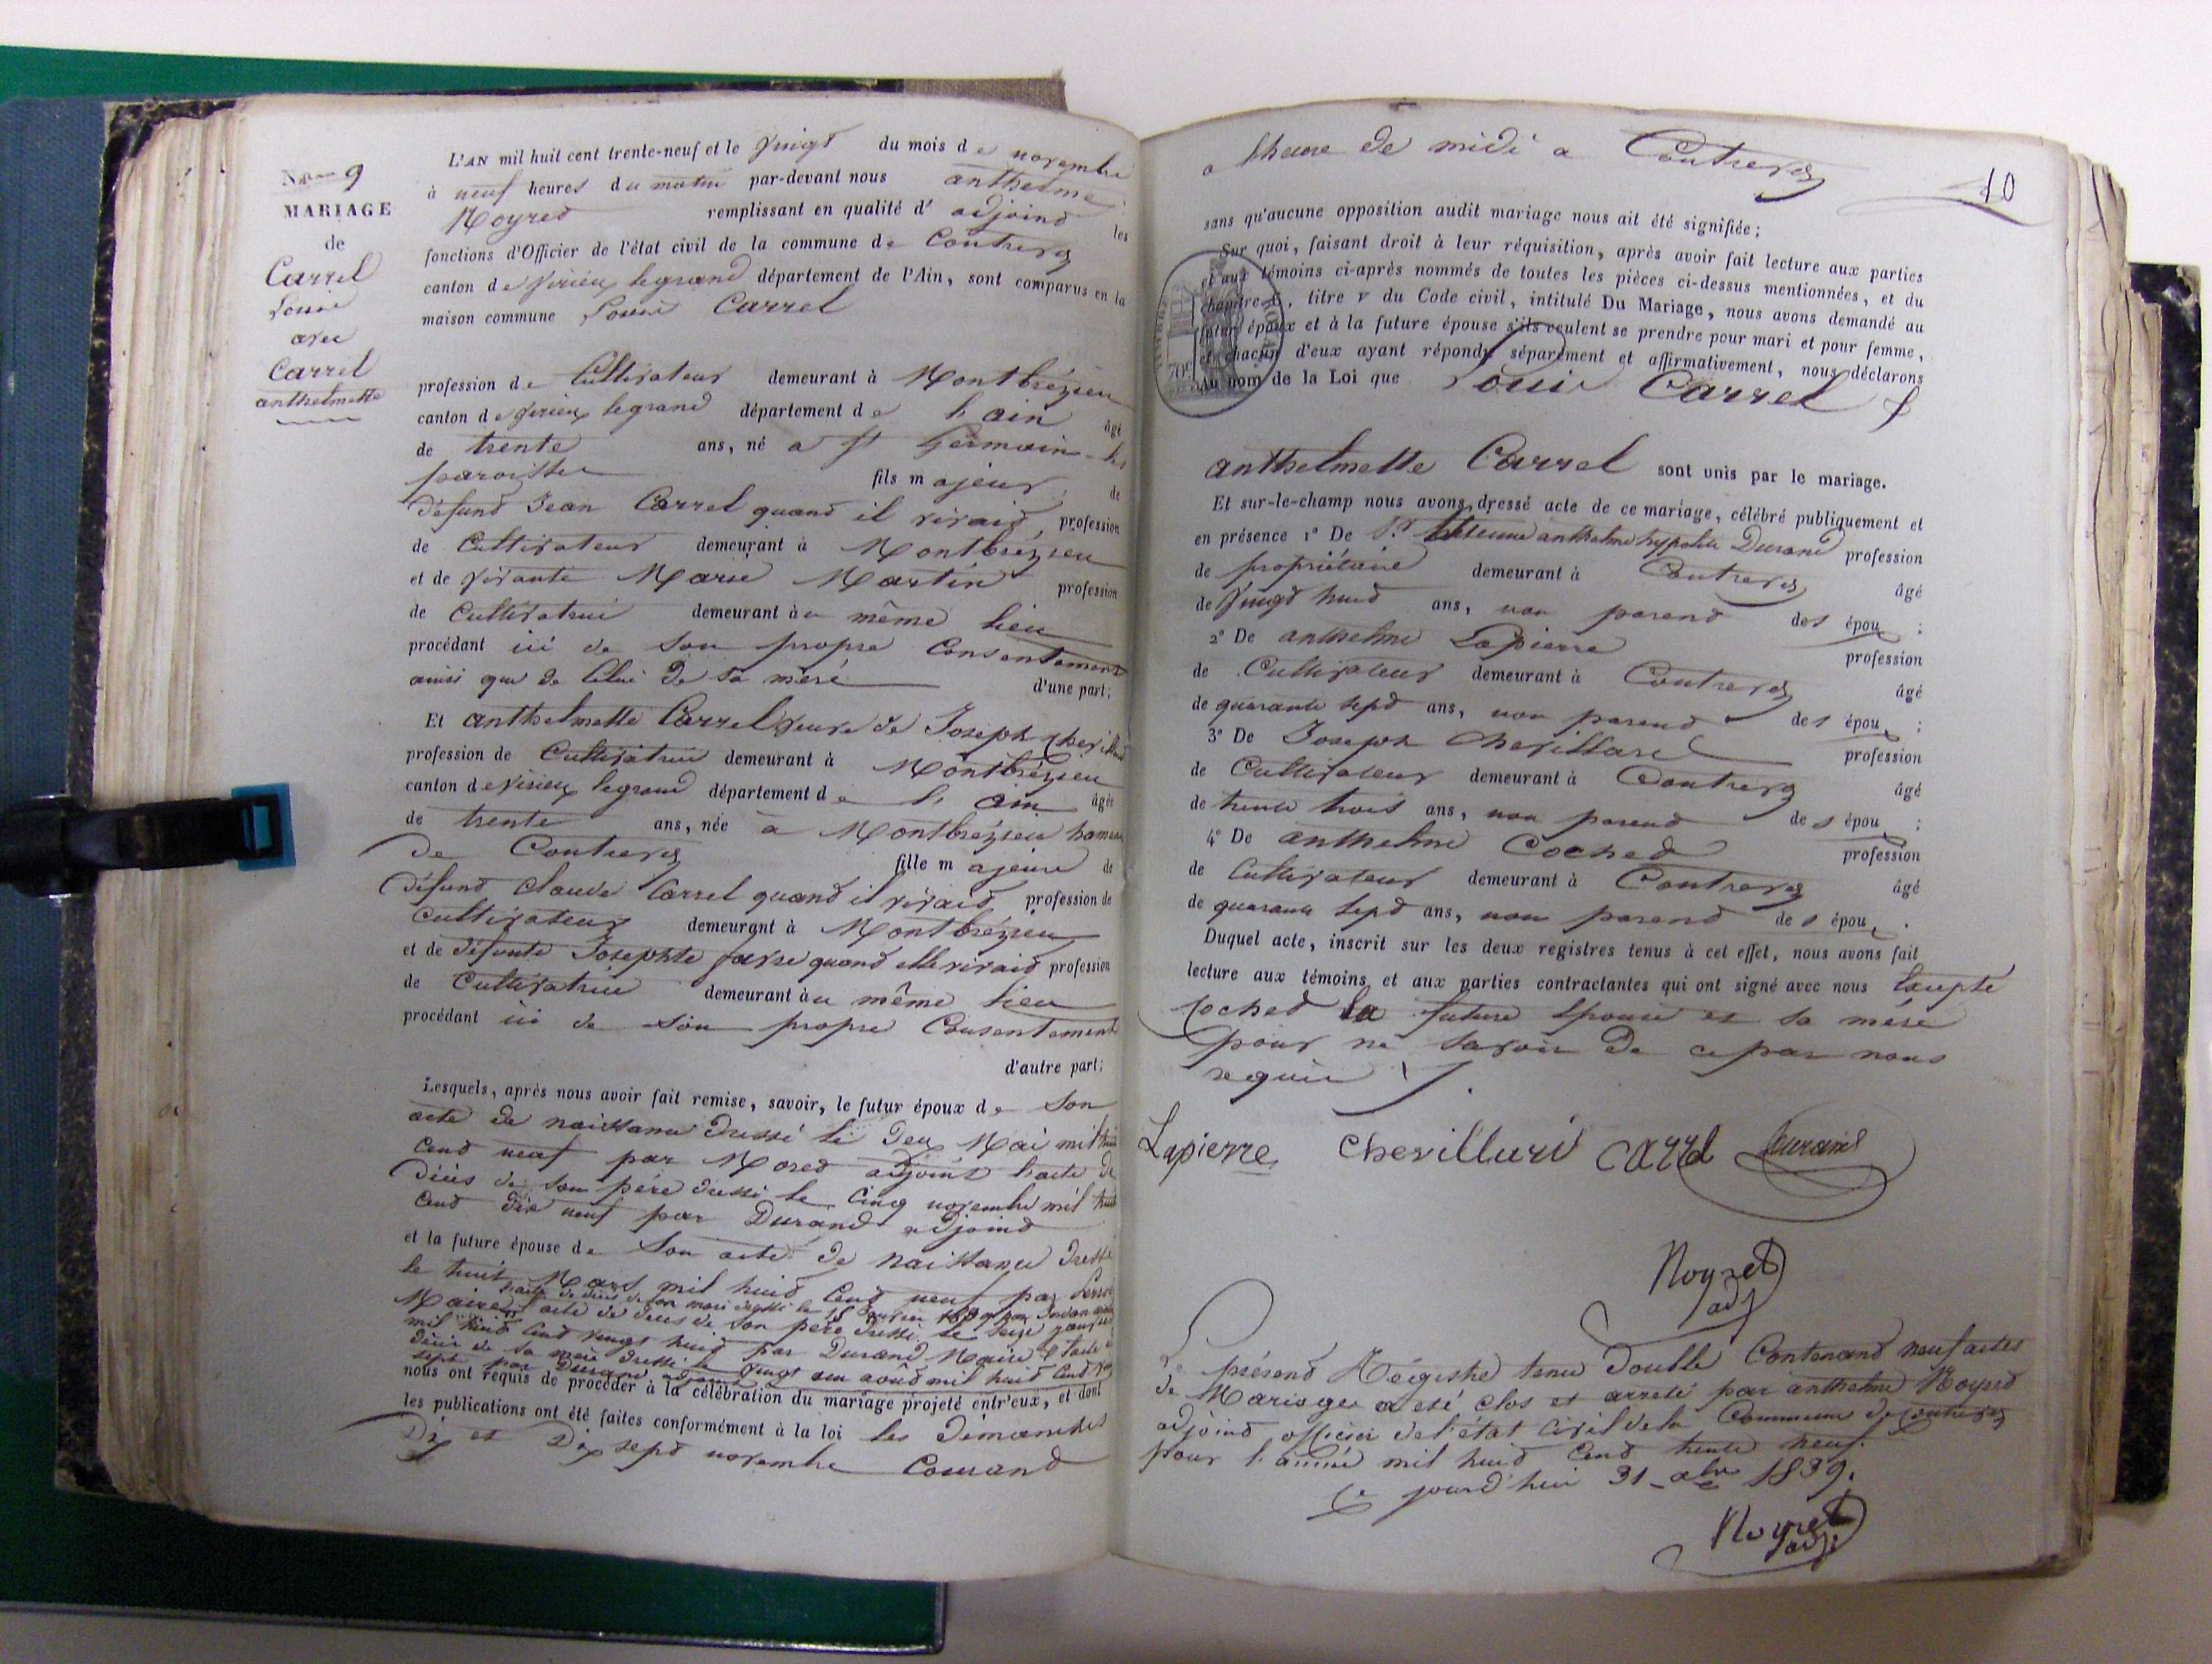 No 9
MARIAGE
de
Carrel
Louis
avec
Carrel
anthelmette
L'AN mil huit cent trente-neuf et le vingt du mois de novembre
à neuf heures du matin par-devant nous anthelme
Noyred remplissant en qualité d' adjoind les
fonctions d'Officier de l'état civil de la commune de Contrevoz
canton de virieux legrand département de l'Ain, sont comparus en la
maison commune Louis Carrel
profession de Cultivateur demeurant à Montbrézieu
canton de virieux legrand département de l'ain âgé
de trente ans, né a st Germain-les
paroisse fils majeur de
défund Jean Carrel quand il vivaid, profession
de Cultivateur demeurant à Montbrézieu
et de vivante Marie Martin profession
de Cultivatrice demeurant au même lieu
procédant ici de son propre Consentement
ainsi que de celui de sa mère d'une part;
Et anthelmette Carrel veuve de Joseph Chevillard
profession de Cultivatrice demeurant à Montbrézieu
canton de virieux legrand département de l'ain âgée
de trente ans, née a Montbrézieu hameau
de Contrevoz fille majeure de
défund claude Carrel quand il vivaid profession de
cultivateur demeurant à Montbrézieu
et de défunte Josephte quand elle vivaid profession
de Cultivatrice demeurant au même lieu
procédant ici de son propre Consentement
d'autre part;
Lesquels, après nous avoir fait remise, savoir, le futur époux de son
acte de naissance dressé le deux Mai mil huit
Cend neuf par Mored adjoint l'acte de
décès de son père dressé le Cinq novembre mil huit
Cend dix neuf par Durand adjoind
et la future épouse de son acte de naissance dressé
le huit Mars mil huid Cend neuf par
l'acte de décès de son mari dressé le 1839 par
Maire l'acte de décès de son père dressé le seize
mil huid Cend vingt huid par Durand Maire l'acte de
décès de sa mère dressé le vingt un aoûd mil huid Cend
sept par Durand adjoint
nous ont requis de procéder à la célébration du mariage projeté entr'eux, et dont
les publications ont été faites conformément à la loi les dimanches
Dix et Dix sept novembre Courand
a l'heure de midi a Contrevoz
10
sans qu'aucune opposition audit mariage nous ait été signifiée;
Sur quoi, faisant droit à leur réquisition, après avoir fait lecture aux parties
et aux témoins ci-après nommés de toutes les pièces ci-dessus mentionnées, et du
chapitre , titre v du Code civil, intitulé Du Mariage, nous avons demandé au
futur époux et à la future épouse s'ils veulent se prendre pour mari et pour femme,
et chacun d'eux ayant répondu séparément et affirmativement, nous déclarons
Au nom de la Loi que Louis Carrel &
anthelmette Carrel sont unis par le mariage.
Et sur-le-champ nous avons dressé acte de ce mariage, célébré publiquement et
en présence 1° De Sr Etienne anthelme hypolite Durand profession
de propriétaire demeurant à Contrevoz âgé
de vingt huid ans, non parend des époux;
2° De anthelme Lapierre profession
de Cultivateur demeurant à Contrevoz âgé
de quarante sept ans, non parend des époux;
3° De Joseph Chevillard profession
de Cultivateur demeurant à Contrevoz âgé
de trente trois ans, non parend des époux;
4° De anthelme Coched profession
de Cultivateur demeurant à Contrevoz âgé
de quarante sept ans, non parend des époux.
Duquel acte, inscrit sur les deux registres tenus à cet effet, nous avons fait
lecture aux témoins et aux parties contractantes qui ont signé avec nous Excepté
Coched la future Epouse et sa mère
pour ne savoir de ce par nous
requis
Lapierre Chevillard Carrel Durand
Noyret
adj
Le présend Régistre tenu double Contenand neuf actes
de Mariages a été clos et arreté par anthelme Noyred
adjoind officier de l'état civil de la Commune de Contrevoz
pour l'année mil huid Cend trente neuf.
Ce jourd'hui 31 xbre 1839.
Noyret
adj